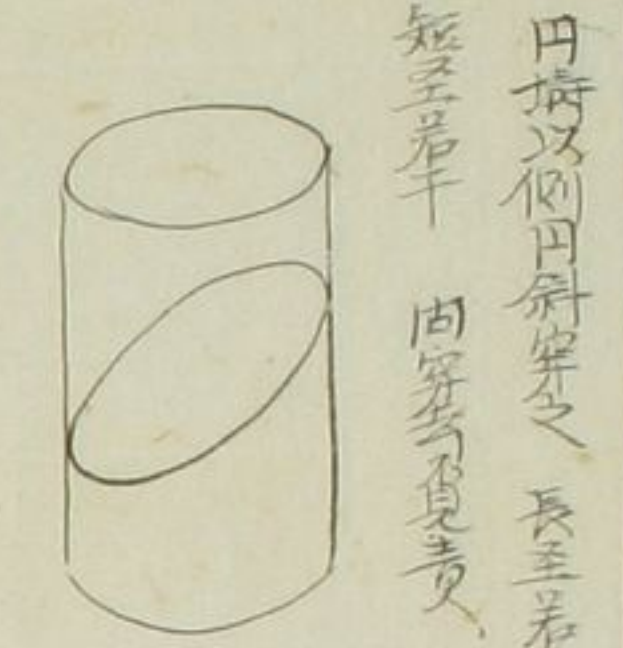 円壔以側円斜穿之 長至若
短至若干 問穿去覓責